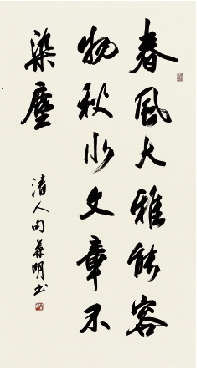 春風大雅能容
物秋水文章不
染塵
清人句 明书